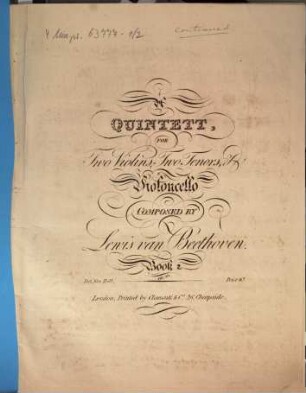 4 Mus.pr. 63778-1/2
continued
A
QUINTETT,
FOR
Two Violins, Two Tenors, &
Violoncello
COMPOSED BY
Lewis van Beethoven.
Book 2
Ent. Sta. Hall.
Price
London, Printed by Clementi & Co. 26, Cheapside.